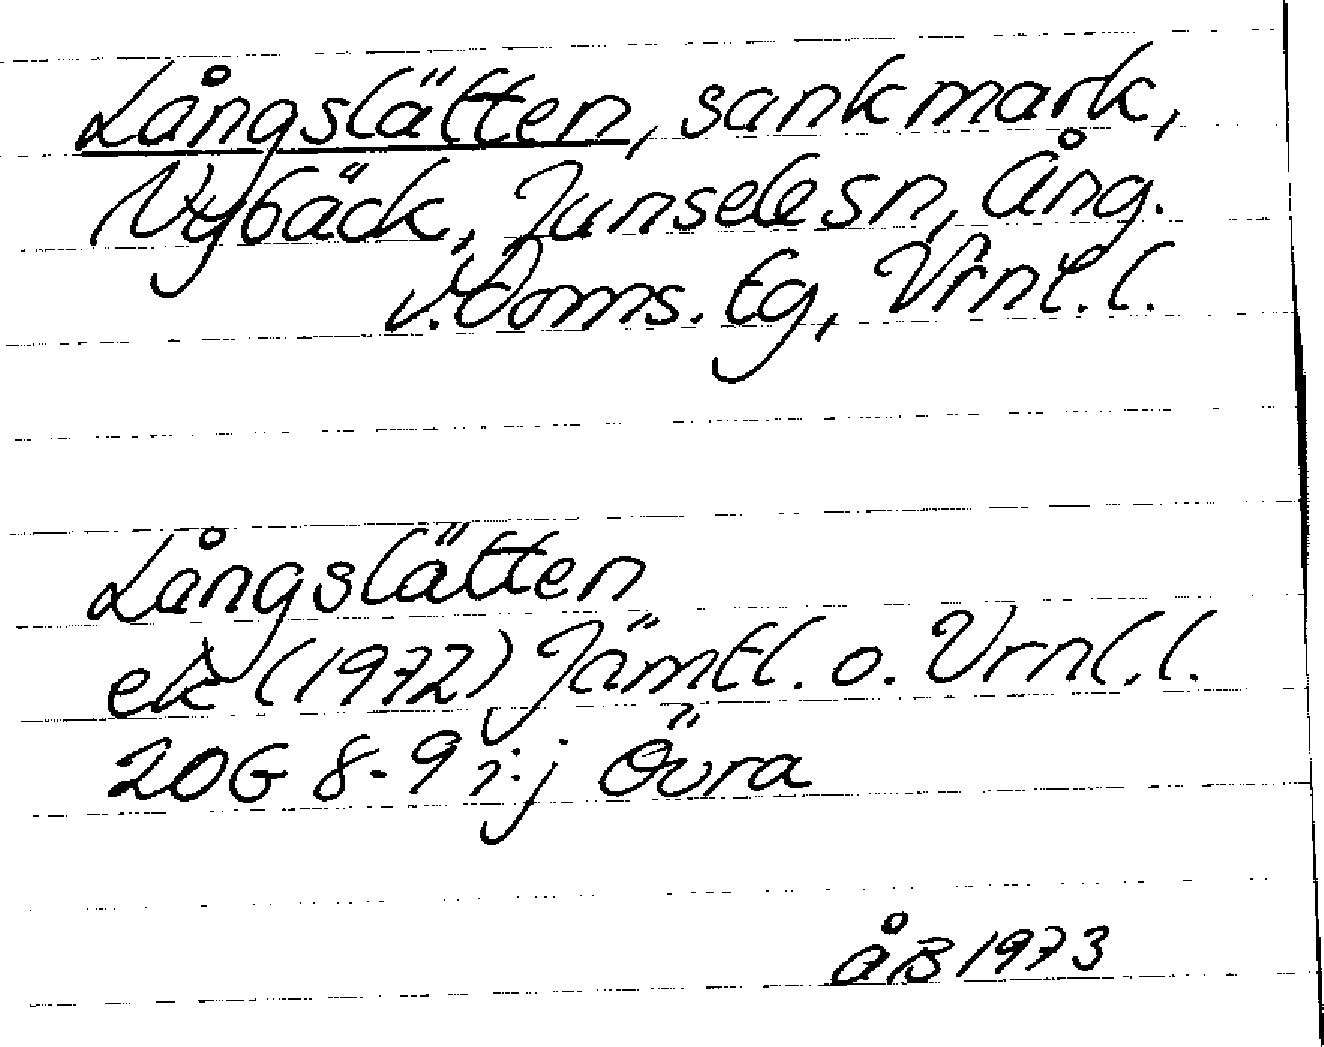 Långslätten, sankmark,
Nybäck, Junselesn, Ång.
v. Doms. tg, Vrnl. l.
Långslätten
ek (1972) Jämtl. o. Vrnl. l.
20G 8-9 i-j Övra
åB 1973